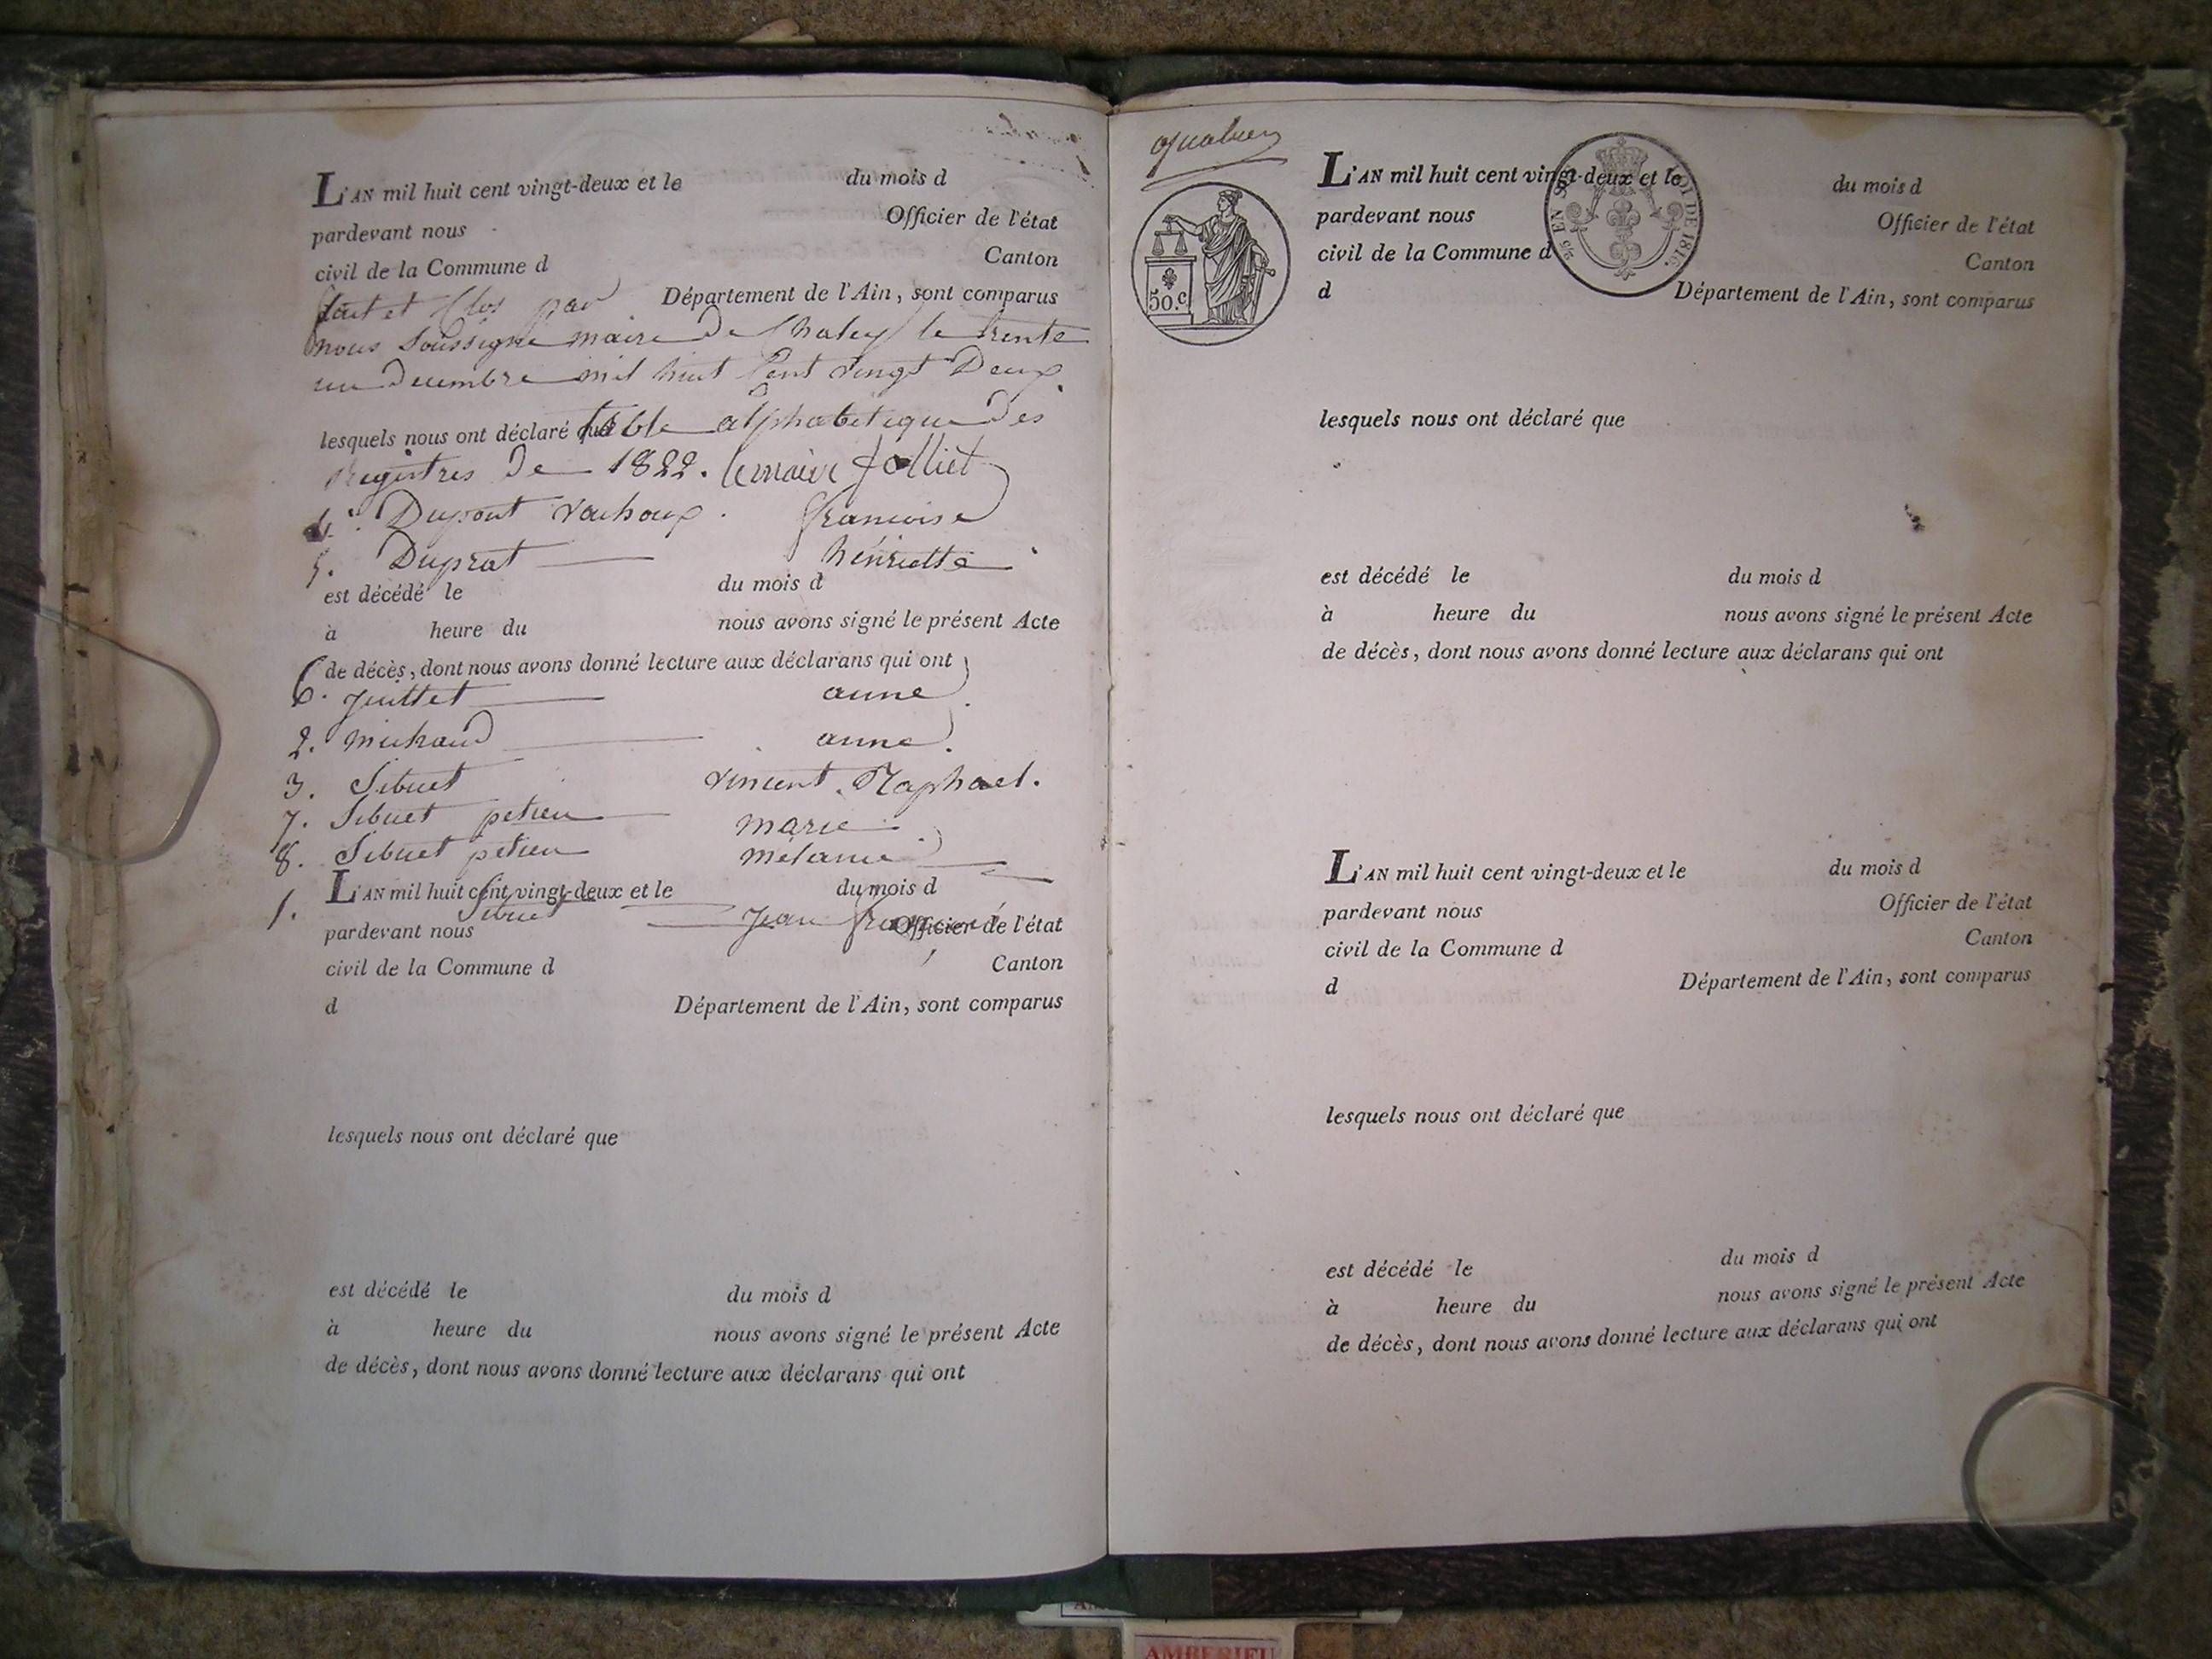 L'AN mil huit cent vingt-deux et le du mois d
pardevant nous Officier de l'état
civil de la Commune d Canton
Département de l'Ain, sont comparus
et Clos par
nous Soussigné maire De Chaley le trente
un Decembre mil huit Cent vingt Deux
lesquels nous ont déclaré que table alphabetique Des
Registres De 1822. le maire Jolliet
4. Dupont vachoux francoise
5. Duprat henriette
est décédé le du mois d
à heure du nous avons signé le présent Acte
de décès, dont nous avons donné lecture aux déclarans qui ont
6. Juillet anne
2. michaud anne
3. Sibuet vincent Raphael.
7. Sibuet petieu marie
8. Sibuet petieu mélanie
L'AN mil huit cent vingt-deux et le du mois d
1. Sibuet Jean
pardevant nous Officier de l'état
civil de la Commune d Canton
d Département de l'Ain, sont comparus
lesquels nous ont déclaré que
est décédé le du mois d
à heure du nous avons signé le présent Acte
de décès, dont nous avons donné lecture aux déclarans qui ont
50.c
L'AN mil huit cent vingt-deux et le du mois d
pardevant nous Officier de l'état
civil de la Commune d Canton
d Département de l'Ain, sont comparus
EN S LOI DE 1816.
lesquels nous ont déclaré que
est décédé le du mois d
à heure du nous avons signé le présent Acte
de décès, dont nous avons donné lecture aux déclarans qui ont
L'AN mil huit cent vingt-deux et le du mois d
pardevant nous Officier de l'état
civil de la Commune d Canton
d Département de l'Ain, sont comparus
lesquels nous ont déclaré que
est décédé le du mois d
à heure du nous avons signé le présent Acte
de décès, dont nous avons donné lecture aux déclarans qui ont
AMBERIEU